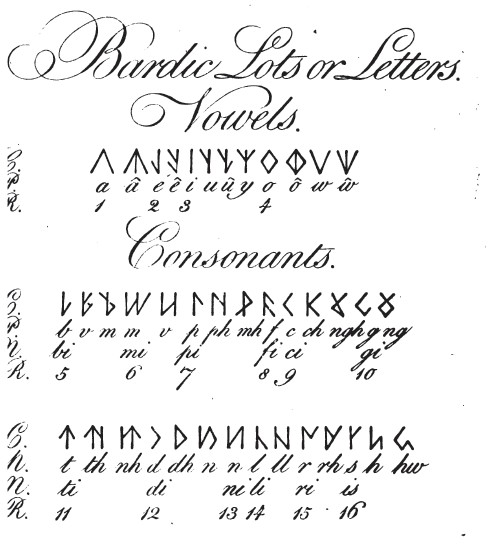 Bardic Lots or Letters.
Vowels.
C.
P. a â e ê i u û y o ô w ŵ
R. 1 2 3 4
Consonants.
C.
P. b v m m v p ph mh f c ch ngh g ng
N. bi mi pi fi ci gi
R. 5 6 7 8 9 10
C.
t th nh d dh n n l ll r rh s h hw
N. ti di ni li ri is
R. 11 12 13 14 15 16